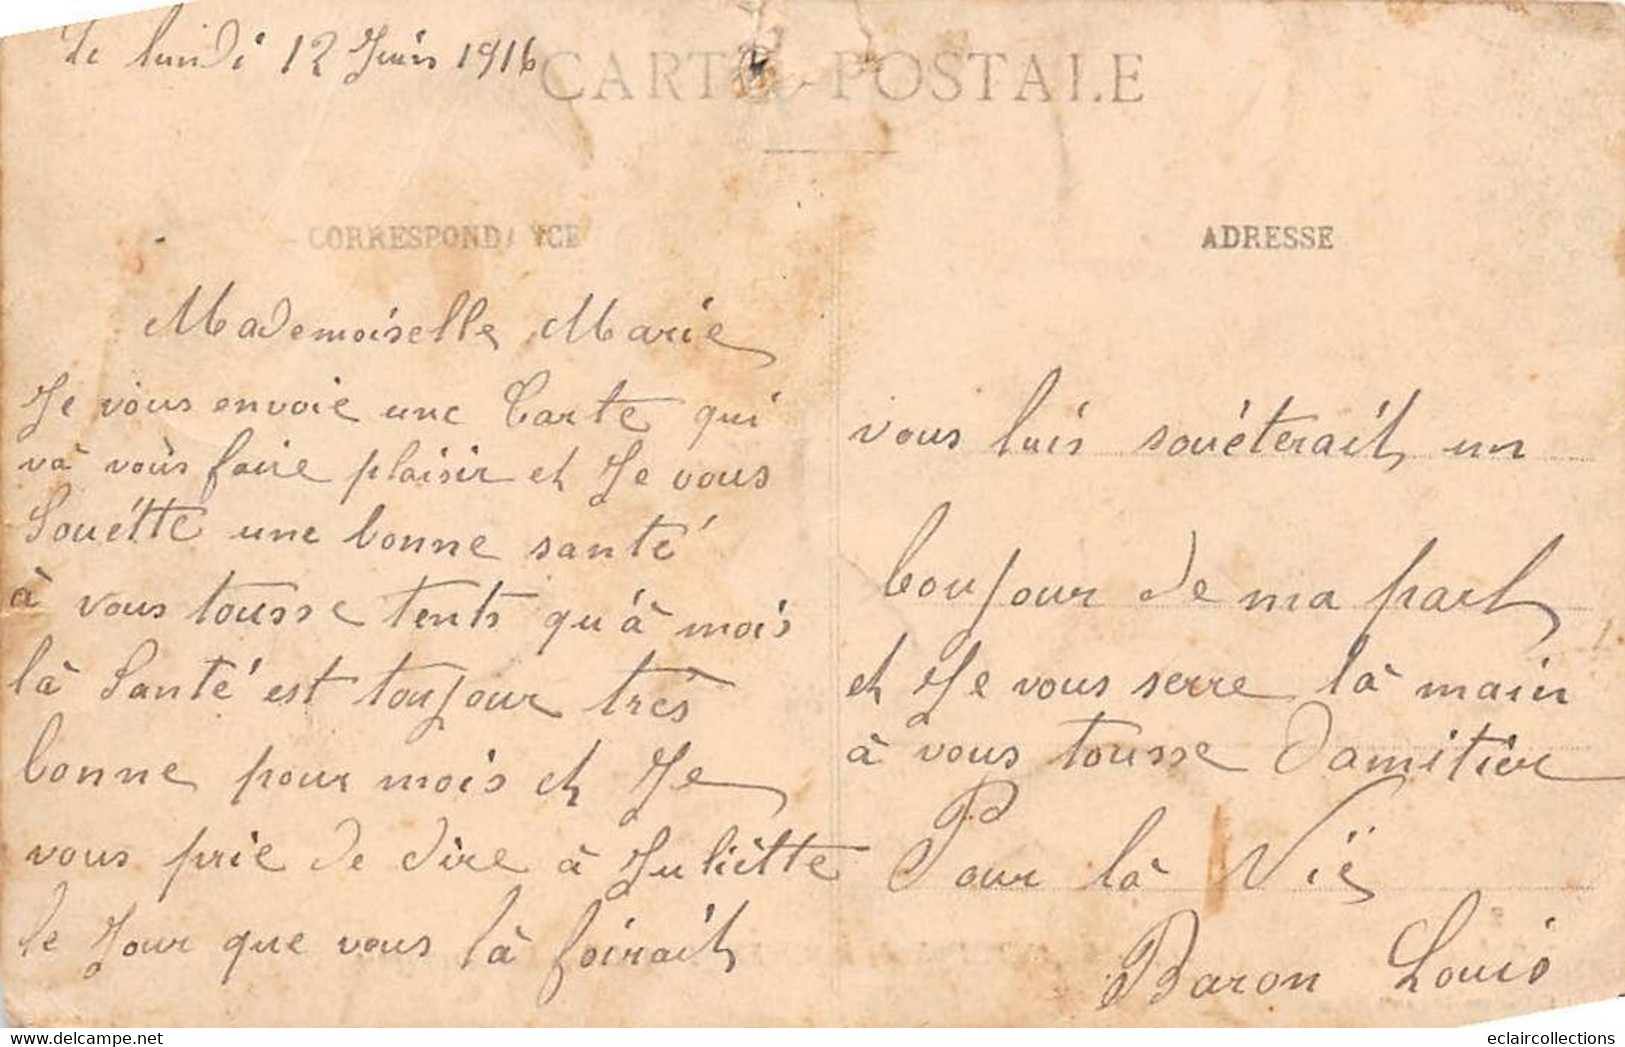 Le lundi 12 Juin 1916
CARTE POSTALE
CORRESPONDANCE
ADRESSE
Mademoiselle Marie
Je vous envoie une Carte qui
và voùs faire plaisir et Je vous
Souétte une bonne santé
à vous tousse tents qu'à mois
là Santé est toujour très
bonne pour mois et Je
vous prie de dire à Juliètte
le Jour que vous là foirait
vous luis souéterait un
boujour de ma part
et Je vous serre là main
à vous tousse damitier
Pour là Vië
Baron Louis
eclaircollections